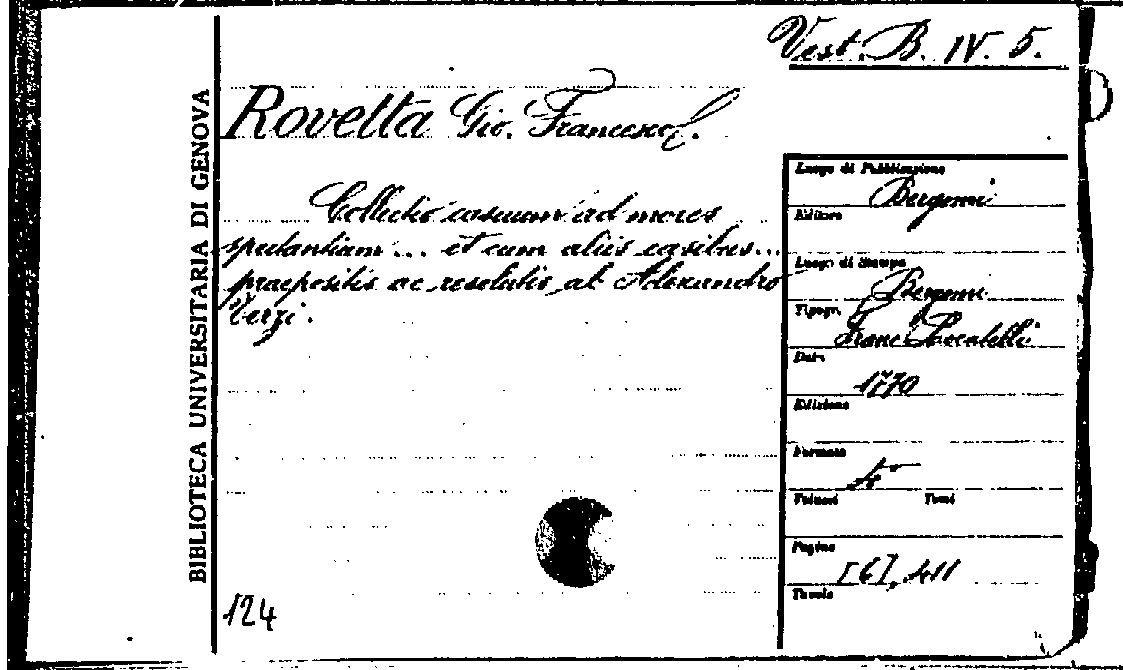 Vest. B. IV. 5.
BIBLIOTECA UNIVERSITARIA DI GENOVA
Rovetta Gio. Francesco.
Collectio casuum ad mores
spectantium ... et cum aliis casibus ...
praepositis ac resolutis at Alexandro
Verzi.
124
Luogo di Pubblicazione
Bergomi
Editore
Luogo di Stampa
Bergomi
Tipogr.
Franc. Locatelli
Data
1770
Edizione
Formato
4°
Volumi Tomi
Pagine
[6], 411
Tavole